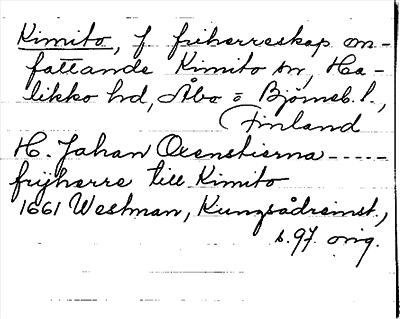 Kimito, f. friherreskap om-
fattande Kimito sn, Ha-
likko hd, Åbo o Björneb. l.,
Finland
H. Johan Oxenstierna -----
frijherre till Kimito
1661 Westman, Kungsådreinst.,
s. 97. orig.